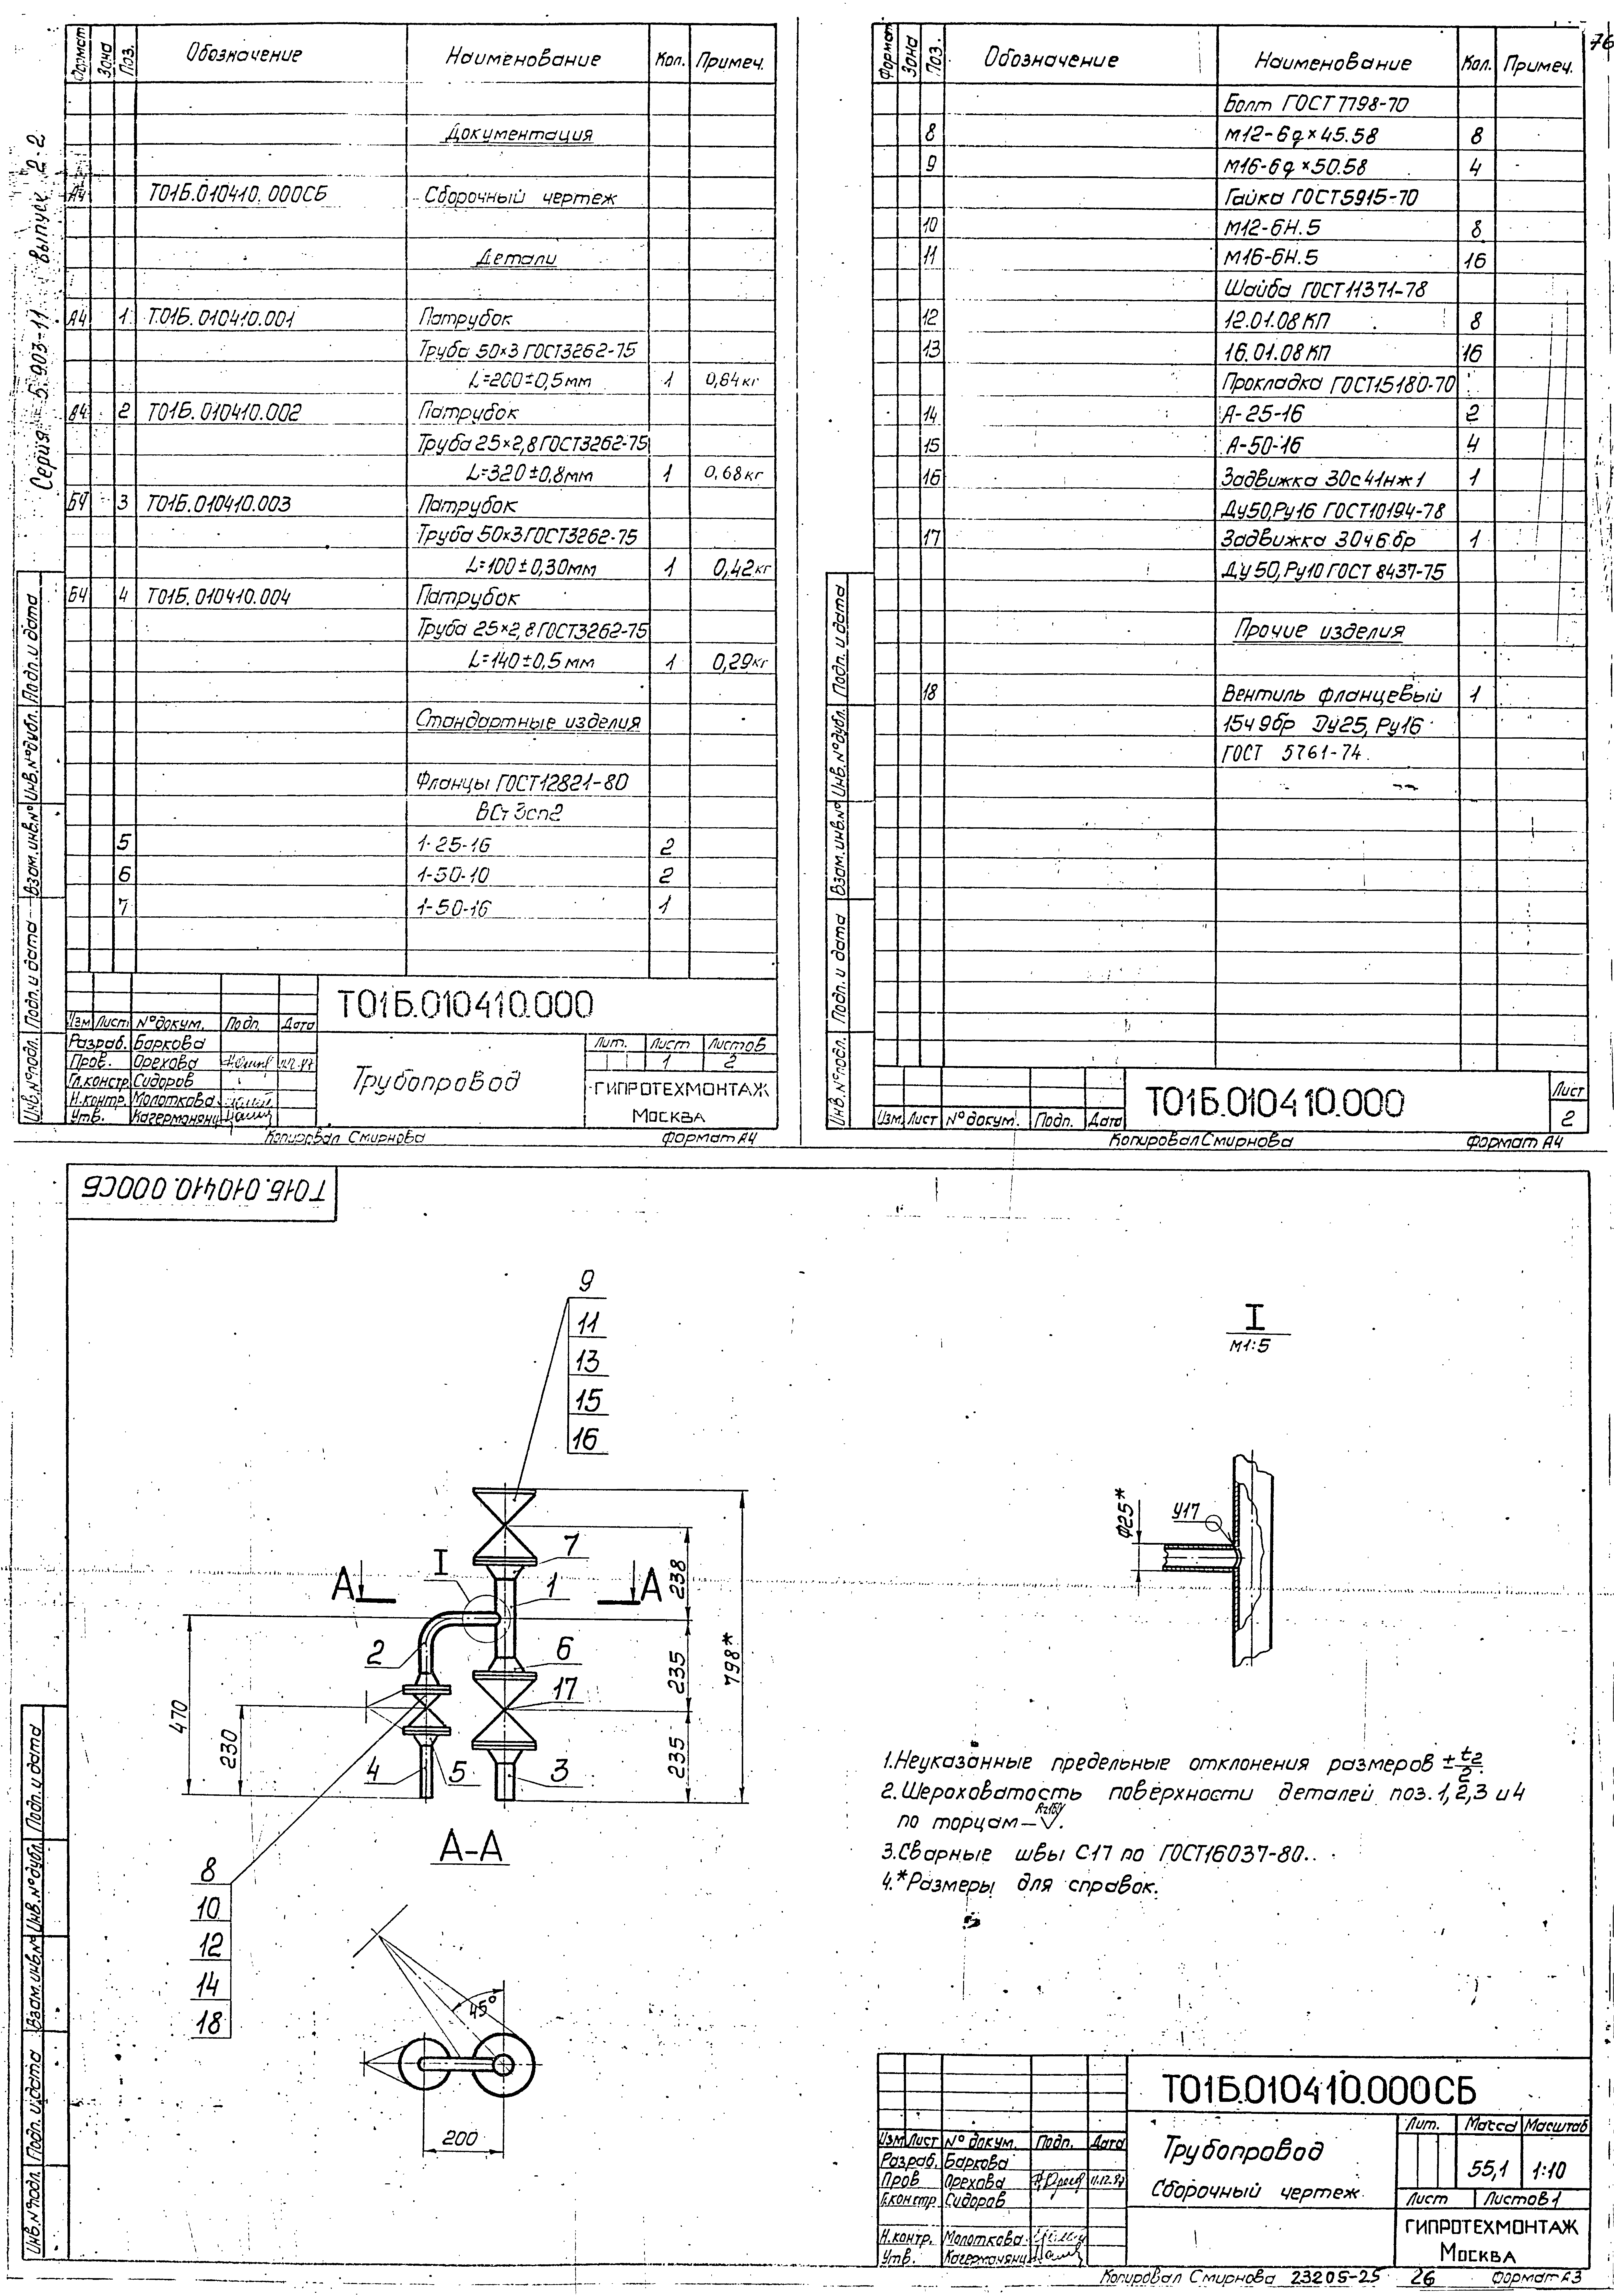 Серия 5.903-11 выпуск 2.2
Формат Зона Поз. Обозначение Наименование Кол. Примеч.
Документация
А4 Т01Б.010410.000СБ Сборочный чертеж
Детали
А4 1 Т.01Б.010410.001 Патрубок
Труба 50×3 ГОСТ3262-75
L=200±0,5мм 1 0,84кг
2 Т01Б.010410.002 Патрубок
Труба 25×2,8 ГОСТ3262-75
L=320±0,8мм 1 0,68кг
Б4 3 Т01Б.010410.003 Патрубок
Труба 50×3 ГОСТ3262-75
L=100±0,30мм 1 0,42кг
Б4 4 Т01Б.010410.004 Патрубок
Труба 25×2,8 ГОСТ3262-75
L=140±0,5мм 1 0,29кг
Стандартные изделия
Фланцы ГОСТ12821-80
ВСт3сп2
5 1-25-16 2
6 1-50-10 2
7 1-50-16 1
Инв.№подл. Подп. и дата Взам.инв.№ Инв.№дубл. Подп. и дата
Т01Б.010410.000
Изм Лист №докум. Подп. Дата
Разраб. Баркова
Пров. Орехова
Гл.констр Сидоров
Н.контр. Молоткова
Утв. Кагермонянц
Трубопровод
Лит. Лист Листов
1 2
ГИПРОТЕХМОНТАЖ
Москва
Копировал Смирнова Формат А4
76
Формат Зона Поз. Обозначение Наименование Кол. Примеч.
Болт ГОСТ 7798-70
8 М12-6g×45.58 8
9 М16-6g×50.58 4
Гайка ГОСТ5915-70
10 М12-6Н.5 8
11 М16-6Н.5 16
Шайба ГОСТ11371-78
12 12.01.08КП 8
13 16.01.08КП 16
Прокладка ГОСТ15180-70
14 А-25-16 2
15 А-50-16 4
16 Задвижка 30с41нж1 1
Ду50,Ру16 ГОСТ10194-78
17 Задвижка 30ч6бр 1
Ду50,Ру10 ГОСТ 8437-75
Прочие изделия
18 Вентиль фланцевый 1
15ч9бр Dу25, Ру16
ГОСТ 5761-74
Инв.№подл. Подп. и дата Взам.инв.№ Инв.№дубл. Подп. и дата
Изм. Лист №докум. Подп. Дата
Т01Б.010410.000
Лист
2
Копировал Смирнова Формат А4
Т01Б.010410.000СБ
9
11
13
15
16
I
М1:5
ф25*
У17
А
I
А
7
1
2
6
17
4
5
3
238
235
235
798*
470
230
А-А
8
10
12
14
18
45°
200
1.Неуказанные предельные отклонения размеров ±t2/2.
2.Шероховатость поверхности деталей поз.1,2,3 и4
по торцам— .
3.Сварные швы С17 по ГОСТ16037-80.
4.*Размеры для справок.
Инв.№подл. Подп. и дата Взам.инв.№ Инв.№дубл. Подп. и дата
Т01Б.010410.000СБ
Изм Лист № докум. Подп. Дата
Разраб. Баркова
Пров Орехова
Г.констр Сидоров
Н.контр. Молоткова
Утв. Кагермонянц
Трубопровод
Сборочный чертеж
Лит. Масса Масштаб
55,1 1:10
Лист Листов 1
ГИПРОТЕХМОНТАЖ
Москва
Копировал Смирнова 23205-25 26 Формат А3